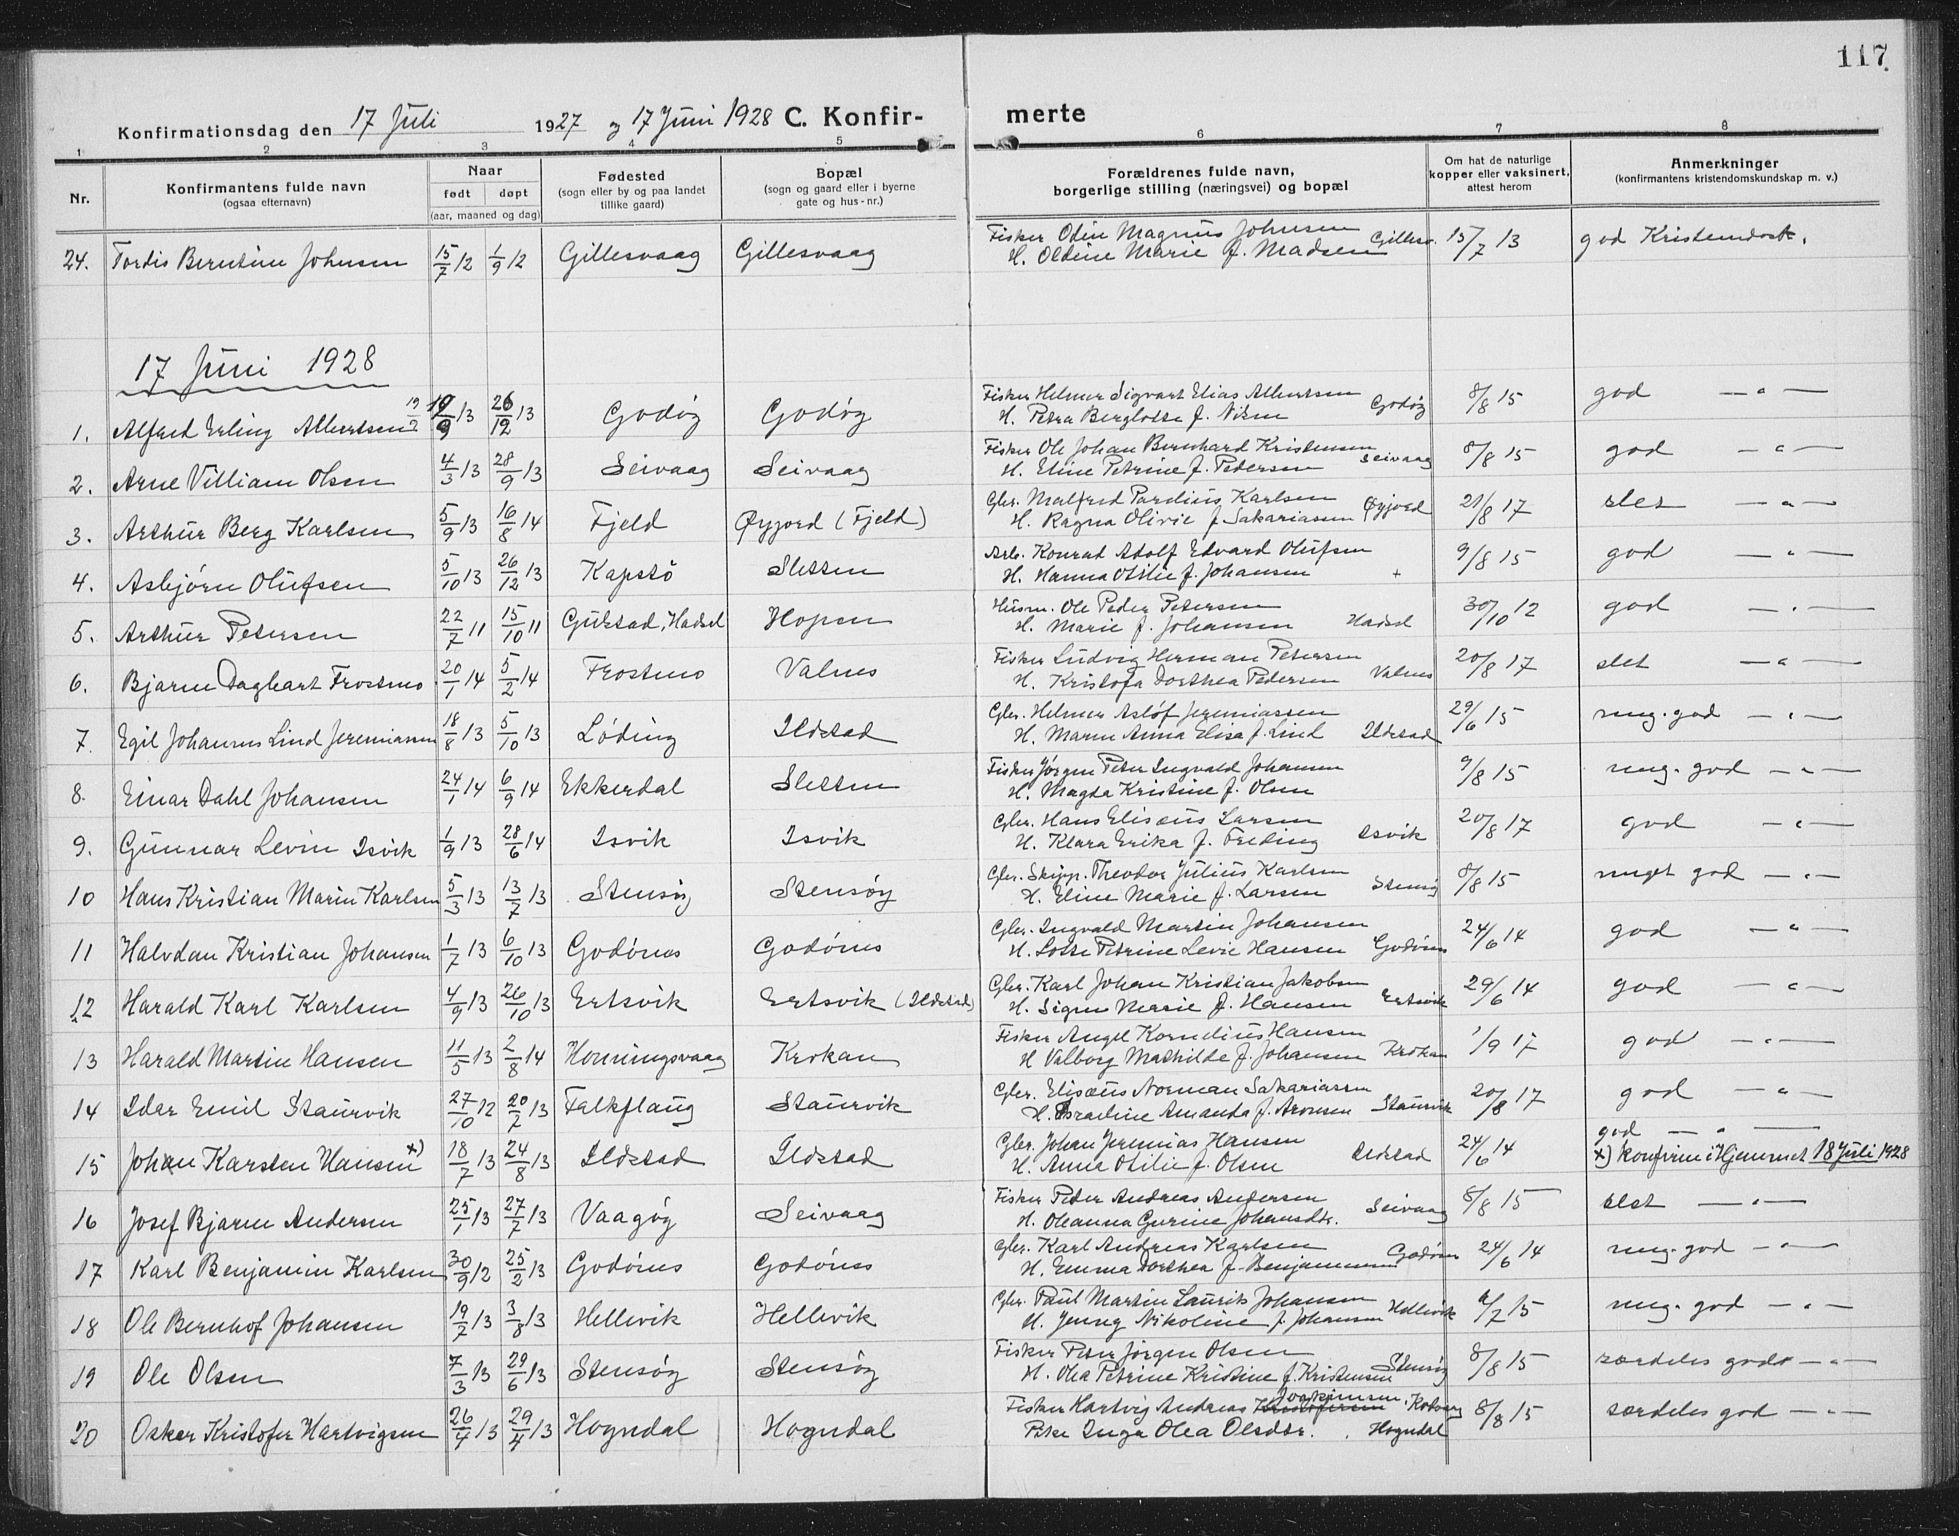 117.
Konfirmationsdag den 17 Juli 1927 og 17 Juni 1928 C. Konfir- merte
1 2 3 4 5 6 7 8
Nr.
Konfirmantens fulde navn
(ogsaa efternavn)
Naar
født døpt
(aar, maaned og dag)
Fødested
(sogn eller by og paa landet
tillike gaard)
Bopæl
(sogn og gaard eller i byerne
gate og hus-nr.)
Forældrenes fulde navn,
borgerlige stilling (næringsvei) og bopæl
Om hat de naturlige
kopper eller vaksinert,
attest herom
Anmerkninger
(konfirmantens kristendomskundskap m. v.)
24. Tordis Berntine Johnsen 15/7 12 1/9 12 Gillesvaag Gillesvaag Fisker Odin Magnus Johnsen Gillesv. 15/7 13 god Kristendosk.
H. Oldine Marie f. Madsen
17 Juni 1928
1. Alfred Erling Albertsen 19/9 13 26/12 13 Godøy Godøy Fisker Helmer Sigvart Elias Albertsen Godøy 8/8 15 god — " —
H. Petra Berglotte f. Nilsen
2. Arne Villiam Olsen 4/3 13 28/9 13 Seivaag Seivaag Fisker Ole Johan Bernhard Kristensen Seivaag 8/8 15 god — " —
H. Eline Petrine f. Pedersen
3. Arthur Berg Karlsen 5/9 13 16/8 14 Fjeld Øyjord (Fjeld) Gbr. Malfred Pardius Karlsen Øyjord 21/8 17 slet — " —
H. Ragna Olivie f. Sakariassen
4. Asbjørn Olufsen 5/10 13 26/12 13 Kapstø Sletten Arb. Konrad Adolf Edvard Olufsen 9/8 15 god — " —
H. Hanna Otilie f. Johansen +
5. Arthur Petersen 22/7 11 15/10 11 Gulstad, Hadsel Hopen Husm. Ole Peder Petersen 30/10 12 god — " —
H. Marie f. Johansen Hadsel
6. Bjarne Dagbart Frostmo 20/1 14 5/2 14 Frostmo Valnes Fisker Ludvig Herman Petersen 20/8 17 slet — " —
H. Kristofa Dorthea Pedersen Valnes
7. Egil Johannes Lind Jeremiassen 18/8 13 5/10 13 Løding Ildstad Gbr. Helmer Asløf Jeremiassen 29/6 15 meg. god — " —
H. Maren Anna Elisa f. Lind Ildstad
8. Einar Dahl Johansen 24/1 14 6/9 14 Ekkerdal Sletten Fisker Jørgen Peter Ingvald Johansen 9/8 15 meg. god — " —
H. Magda Kristine f. Olsen
9. Gunnar Levin Isvik 1/9 13 28/6 14 Isvik Isvik Gbr. Hans Elisæus Larsen 20/8 17 god — " —
H. Klara Erika f. Freding Isvik
10 Hans Kristian Marin Karlsen 5/3 13 13/7 13 Stensøy Stensøy Gbr. Skipp. Theodor Julius Karlsen 8/8 15 meget god — " —
H. Eline Marie f. Larsen Stensøy
11 Halvdan Kristian Johansen 1/7 13 6/10 13 Godønes Godønes Gbr. Ingvald Martin Johansen 24/6 14 god — " —
H. Lotte Petrine Levie Hansen Godønes
12 Harald Karl Karlsen 4/9 13 26/10 13 Ertsvik Ertsvik (Ildstad) Gbr. Karl Johan Kristian Jakobsen 29/6 14 god — " —
H. Signe Marie f. Hansen Ertsvik
13 Harald Martin Hansen 11/5 13 2/8 14 Honningsvaag Krokan Fisker Angel Kornelius Hansen 1/9 17 god — " —
H Valborg Mathilde f. Johansen Krokan
14 Idar Emil Staurvik 27/10 12 20/7 13 Falkflaug Staurvik Gbr. Elisæus Norman Sakariassen 20/8 17 god — " —
H. Israeline Amanda f. Aronsen Staurvik
15 Johan Karsten Hansen x) 18/7 13 24/8 13 Ildstad Ildstad Gbr. Johan Jeremias Hansen Ildstad 24/6 14 god — " —
H. Anna Otilie f. Olsen x) konfirm. i Hjemmet 18 Juli 1928
16 Josef Bjarne Andersen 25/1 13 27/7 13 Vaagøy Seivaag Fisker Peder Andreas Andersen Seivaag 8/8 15 slet — " —
H. Oleanna Gurine Johansdtr.
17 Karl Benjamin Karlsen 30/9 12 25/2 13 Godønes Godønes Gbr. Karl Andreas Karlsen Godønes 24/6 14 meg. god — " —
H. Emma Dorthea f. Benjaminsen
18 Ole Bernhof Johansen 19/2 13 3/8 13 Hellevik Hellevik Gbr. Paul Martin Laurits Johansen Hellevik /7 15 meg. god — " —
H. Jenny Nikoline f. Johansen
19 Ole Olsen 7/3 13 29/6 13 Stensøy Stensøy Fisker Peter Jørgen Olsen Stensøy 8/8 15 særdeles godt — " —
H. Olea Petrine Kristine f. Kristensen
20 Oskar Kristofer Hartvigsen 26/4 13 29/4 13 Hogndal Hogndal Fisker Hartvig Andreas Kristofersen Joakimsen 8/8 15 særdeles god — " —
Pike Inga Olea Olsdtr. Hogndal